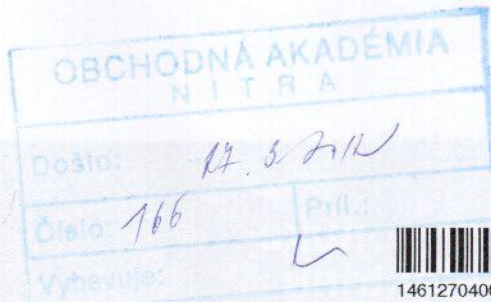 OBCHODNÁ AKADÉMIA
NITRA
Došlo:
Číslo: 166 Príl.:
Vybavuje:
1461270400